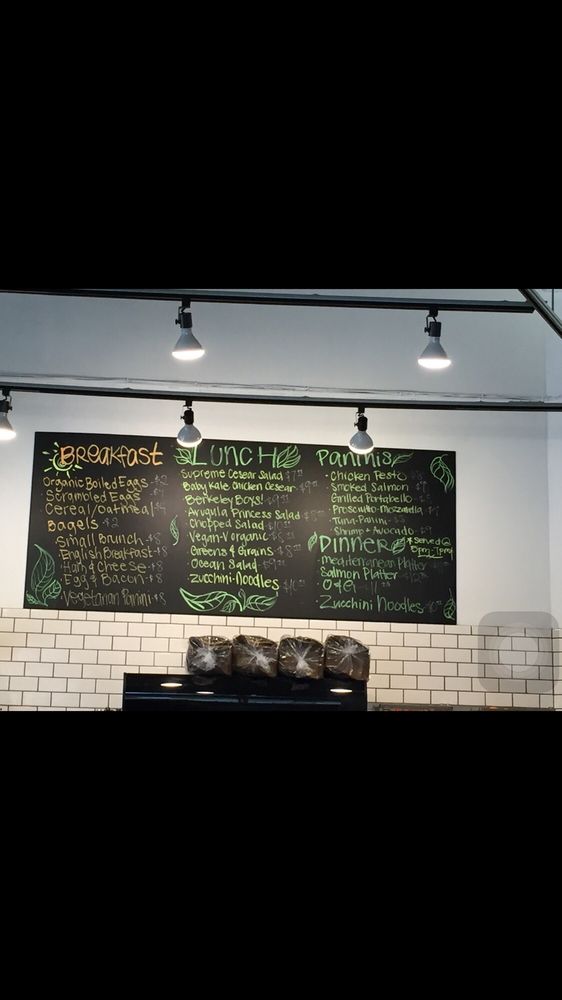 Breakfast
Organic Boiled Eggs -$2
Scrambled Eggs
Cereal/oatmeal
Bagels $2
Small Brunch $8
English Breakfast $8
Ham & cheese $8
Egg & Bacon $8
Vegetarian Panini $8
Lunch
Supreme Cesear Salad
Baby Kale Chicken Cesear
Berkeley Boys!
Arugula Princess Salad
Chopped Salad
Vegan-Vorganic
Greens & Grains
Ocean Salad
Zucchini-Noodles
Paninis
Chicken Pesto
Smoked Salmon
Grilled Portabello
Proscuitto-Mozzadella
Tuna-Panini
Shrimp + Avocado
Dinner
*served @
5pm-7pm
mediterranean Platter
Salmon Platter
Zucchini Noodles